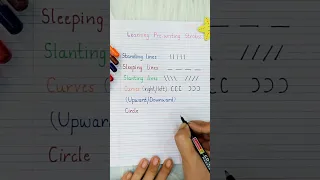 Learning Pre-writing Strokes
Standing lines | | | | |
Sleeping lines — — — —
Slanting lines \ \ \ \ / / / /
Curves (right/left) C C C Ɔ Ɔ Ɔ
(Upward/Downward)
Circle
Sleeping
Slanting
Curves
(Upwar
Circle